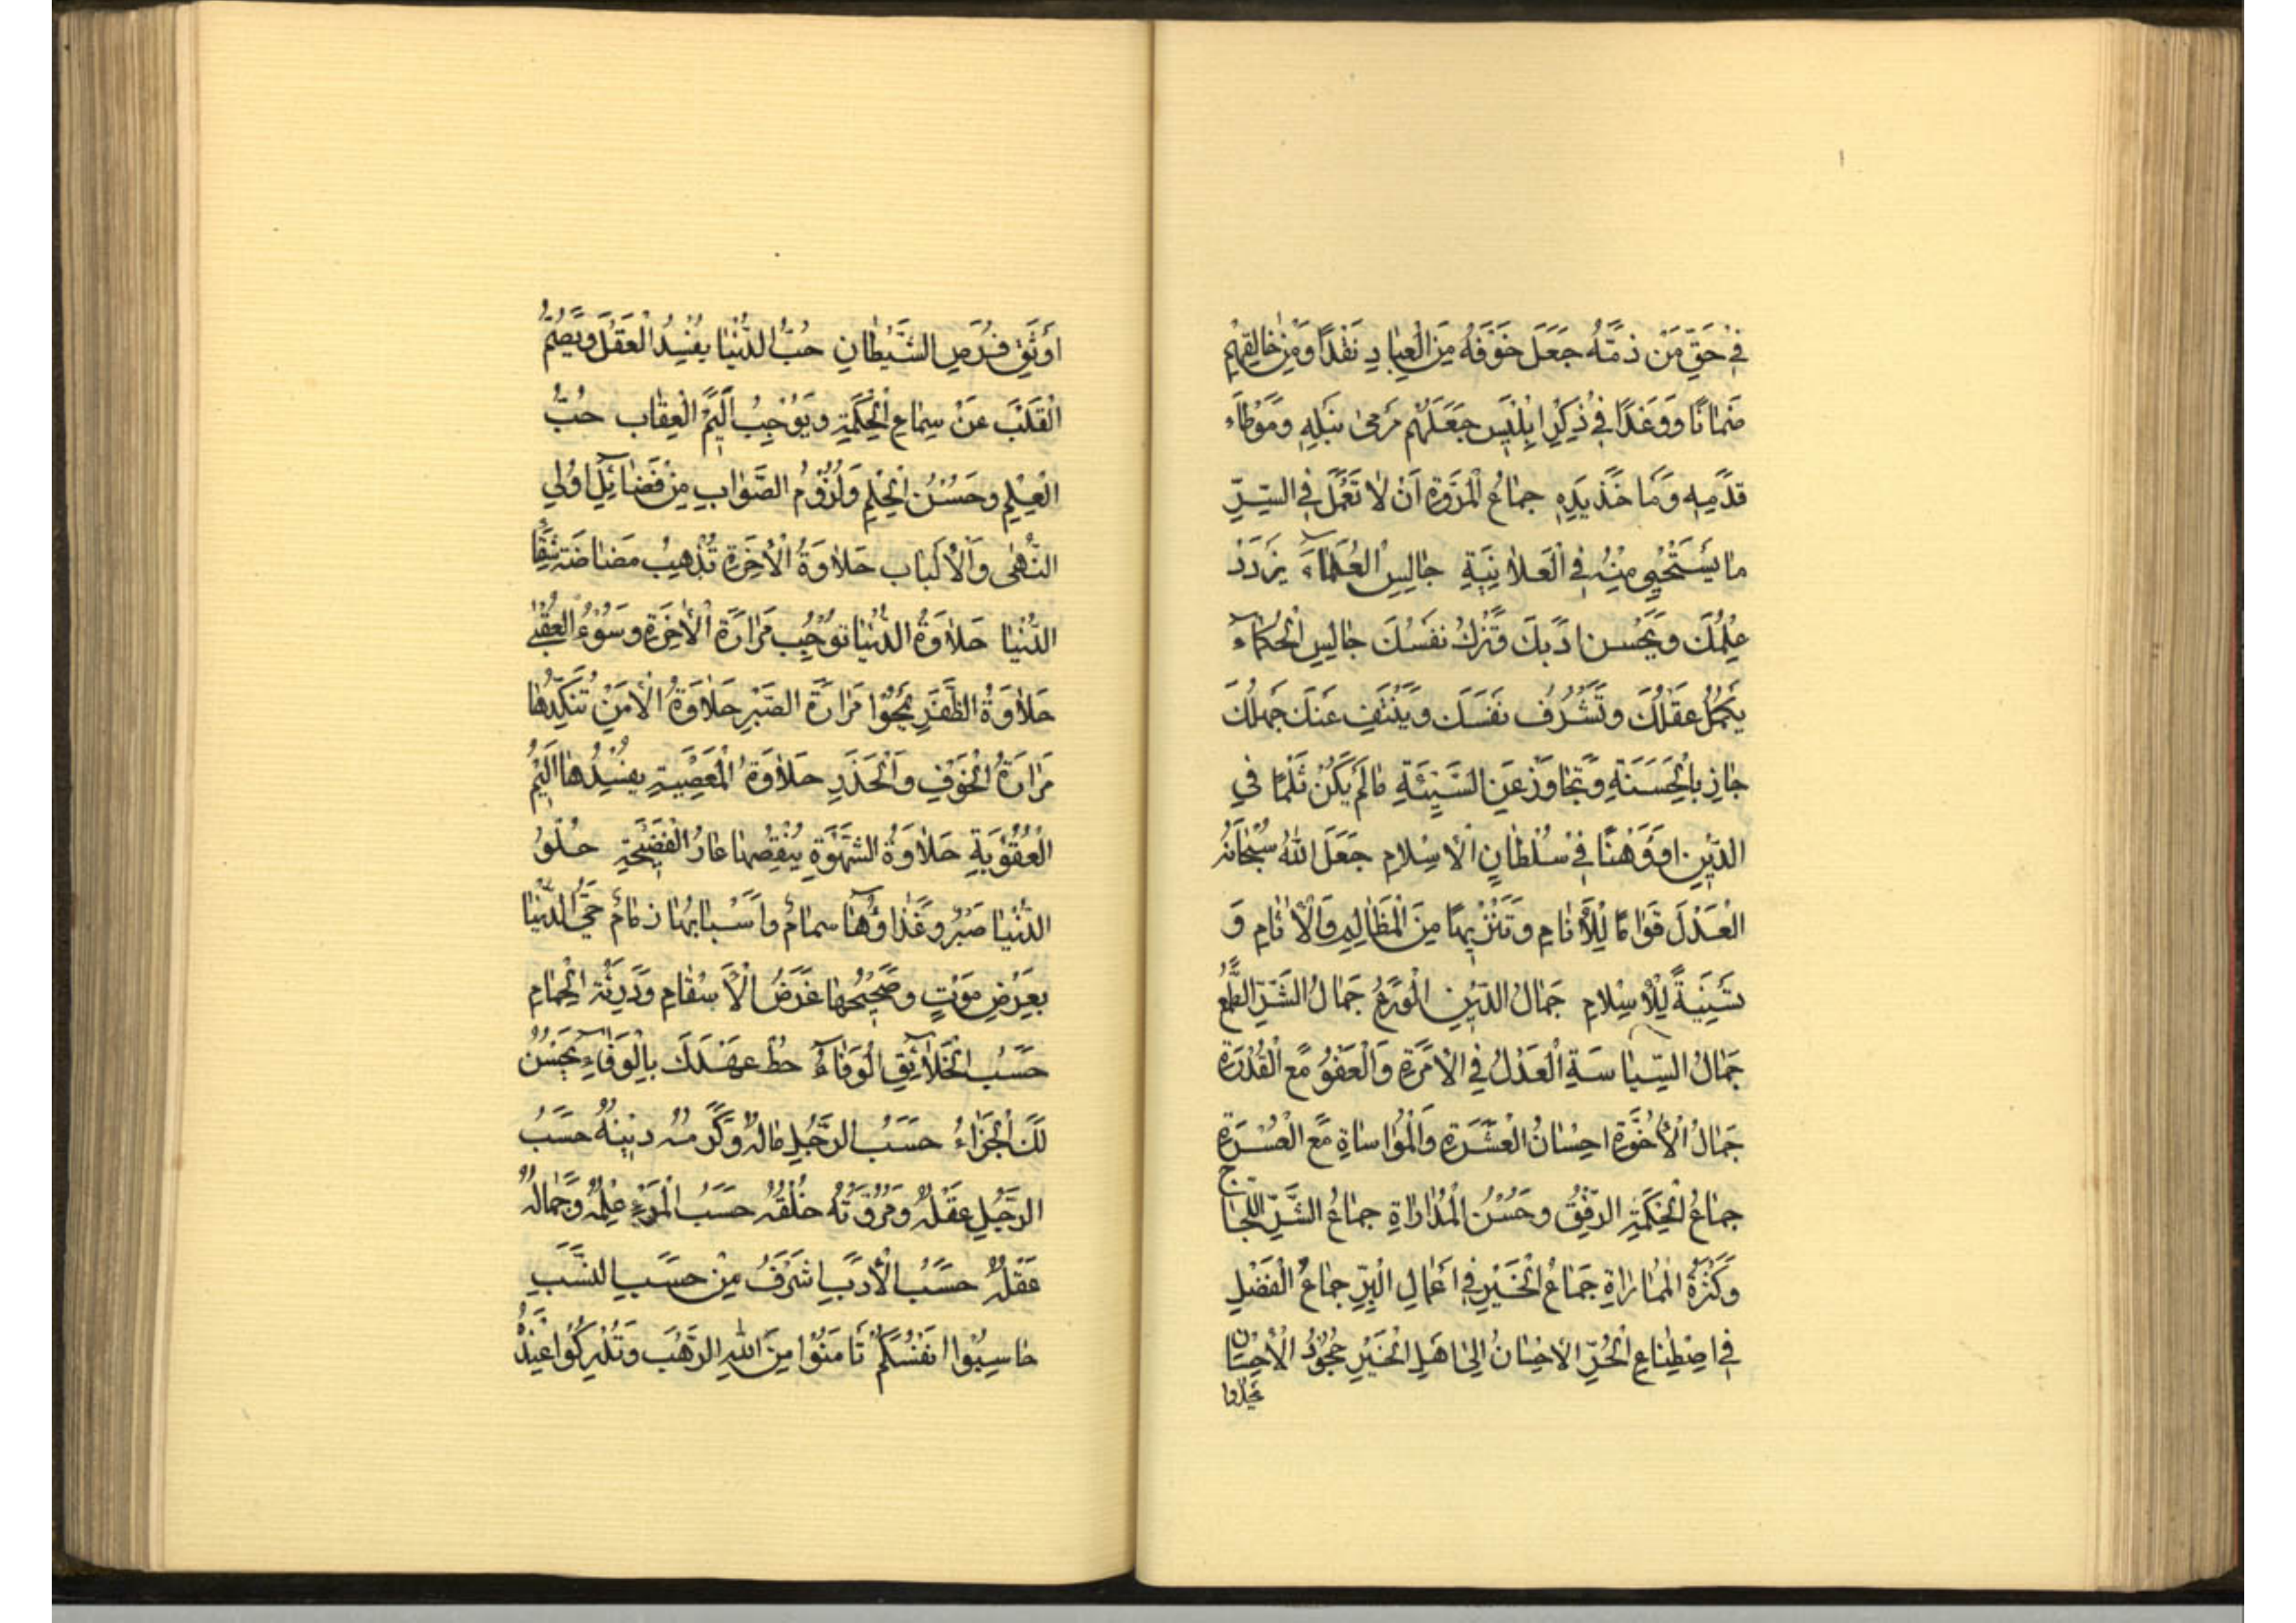 فِي حَقِّ مَنْ ذَمَّهُ جَعَلَ خَوْفَهُ مِنَ الْعِبَادِ نَقْدًا وَمِنْ خَالِقِهِمْ
ضَمَانًا وَوَعْدًا فِي ذِكْرِ اِبْلِيسَ جَعَلَهُمْ مَرْمَى نَبْلِهِ وَمَوْطَاَ
قَدَمِهِ وَمَاخَذَ يَدِهِ جِمَاعُ الْمُرُوَّةِ اَنْ لَا تَعْمَلَ فِي السِّرِّ
مَا يَسْتَحْيِي مِنْهُ فِي الْعَلَانِيَةِ جَالِسِ الْعُلَمَاءَ يَزْدَدْ
عِلْمُكَ وَيَحْسُنْ اَدَبُكَ وَتَزْكُ نَفْسُكَ جَالِسِ الْحُكَمَاءَ
يَكْمُلْ عَقْلُكَ وَتَشْرُفْ نَفْسُكَ وَيَنْتَفِ عَنْكَ جَهْلُكَ
جَازِ بِالْحَسَنَةِ وَتَجَاوَزْ عَنِ السَّيِّئَةِ مَا لَمْ يَكُنْ ثَلْمًا فِي
الدِّينِ اَوْ وَهْنًا فِي سُلْطَانِ الْاِسْلَامِ جَعَلَ اللهُ سُبْحَانَهُ
الْعَدْلَ قَوَامًا لِلْاَنَامِ وَتَنْزِيهًا مِنَ الْمَظَالِمِ وَالْاٰثَامِ وَ
تَسْنِيَةً لِلْاِسْلَامِ جَمَالُ الدِّينِ الْوَرَعُ جَمَالُ الشَّرِّ الطَّمَعُ
جَمَالُ السِّيَاسَةِ الْعَدْلُ فِي الْاِمْرَةِ وَالْعَفْوُ مَعَ الْقُدْرَةِ
جَمَالُ الْاُخُوَّةِ اِحْسَانُ الْعِشْرَةِ وَالْمُوَاسَاةِ مَعَ الْعُسْرَةِ
جِمَاعُ الْحِكْمَةِ الرِّفْقُ وَحُسْنُ الْمُدَارَاةِ جِمَاعُ الشَّرِّ اللَّجَاجُ
وَكَثْرَةُ الْمُمَارَاةِ جِمَاعُ الْخَيْرِ فِي اَعْمَالِ الْبِرِّ جِمَاعُ الْفَضْلِ
فِي اصْطِنَاعِ الْحُرِّ الْاِحْسَانُ اِلَى اَهْلِ الْخَيْرِ جُحُودُ الْاِحْسَانِ
اَوْثَقُ فُرَصِ الشَّيْطَانِ حُبُّ الدُّنْيَا يُفْسِدُ الْعَقْلَ وَيُصِمُّ
الْقَلْبَ عَنْ سِمَاعِ الْحِكْمَةِ وَيُوْجِبُ اَلِيمَ الْعِقَابِ حُبُّ
الْعِلْمِ وَحُسْنُ الْحِلْمِ وَلُزُوْمُ الصَّوَابِ مِنْ فَضَائِلِ اُولِي
النُّهَى وَالْاَلْبَابِ حَلَاوَةُ الْاٰخِرَةِ تُذْهِبُ مَضَاضَةَ شِقَا
الدُّنْيَا حَلَاوَةُ الدُّنْيَا تُوْجِبُ مَرَارَةَ الْاٰخِرَةِ وَسُوْءَ الْعُقْبٰى
حَلَاوَةُ الظَّفَرِ تَمْحُوا مَرَارَةَ الصَّبْرِ حَلَاوَةُ الْاَمْنِ تُنَكِّدُهَا
مَرَارَةُ الْخَوْفِ وَالْحَذَرِ حَلَاوَةُ الْمَعْصِيَةِ يُفْسِدُهَا اَلِيمُ
الْعُقُوْبَةِ حَلَاوَةُ الشَّهْوَةِ يُنْغِصُهَا عَارُ الْفَضِيحَةِ حُلْوُ
الدُّنْيَا صَبْرٌ وَغَذَاؤُهَا سِمَامٌ وَاَسْبَابُهَا زِمَامٌ حَيُّ الدُّنْيَا
بِعَرَضِ مَوْتٍ وَصَحِيحُهَا غَرَضُ الْاَسْقَامِ وَدَرِيئَةُ الْحِمَامِ
حَسَبُ الْخَلَائِقِ الْوَفَاءُ حُطْ عَهْدَكَ بِالْوَفَاءِ يَحْسُنْ
لَكَ الْجَزَاءُ حَسَبُ الرَّجُلِ مَالُهُ وَكَرَمُهُ دِينُهُ حَسَبُ
الرَّجُلِ عَقْلُهُ وَمُرُوَّتُهُ خُلْقُهُ حَسَبُ الْمَرْءِ عِلْمُهُ وَجَمَالُهُ
عَقْلُهُ حَسَبُ الْاَدَبِ اَشْرَفُ مِنْ حَسَبِ النَّسَبِ
حَاسِبُوا اَنْفُسَكُمْ تَامَنُوْا مِنَ اللهِ الرَّهَبَ وَتُدْرِكُوا عِنْدَهُ